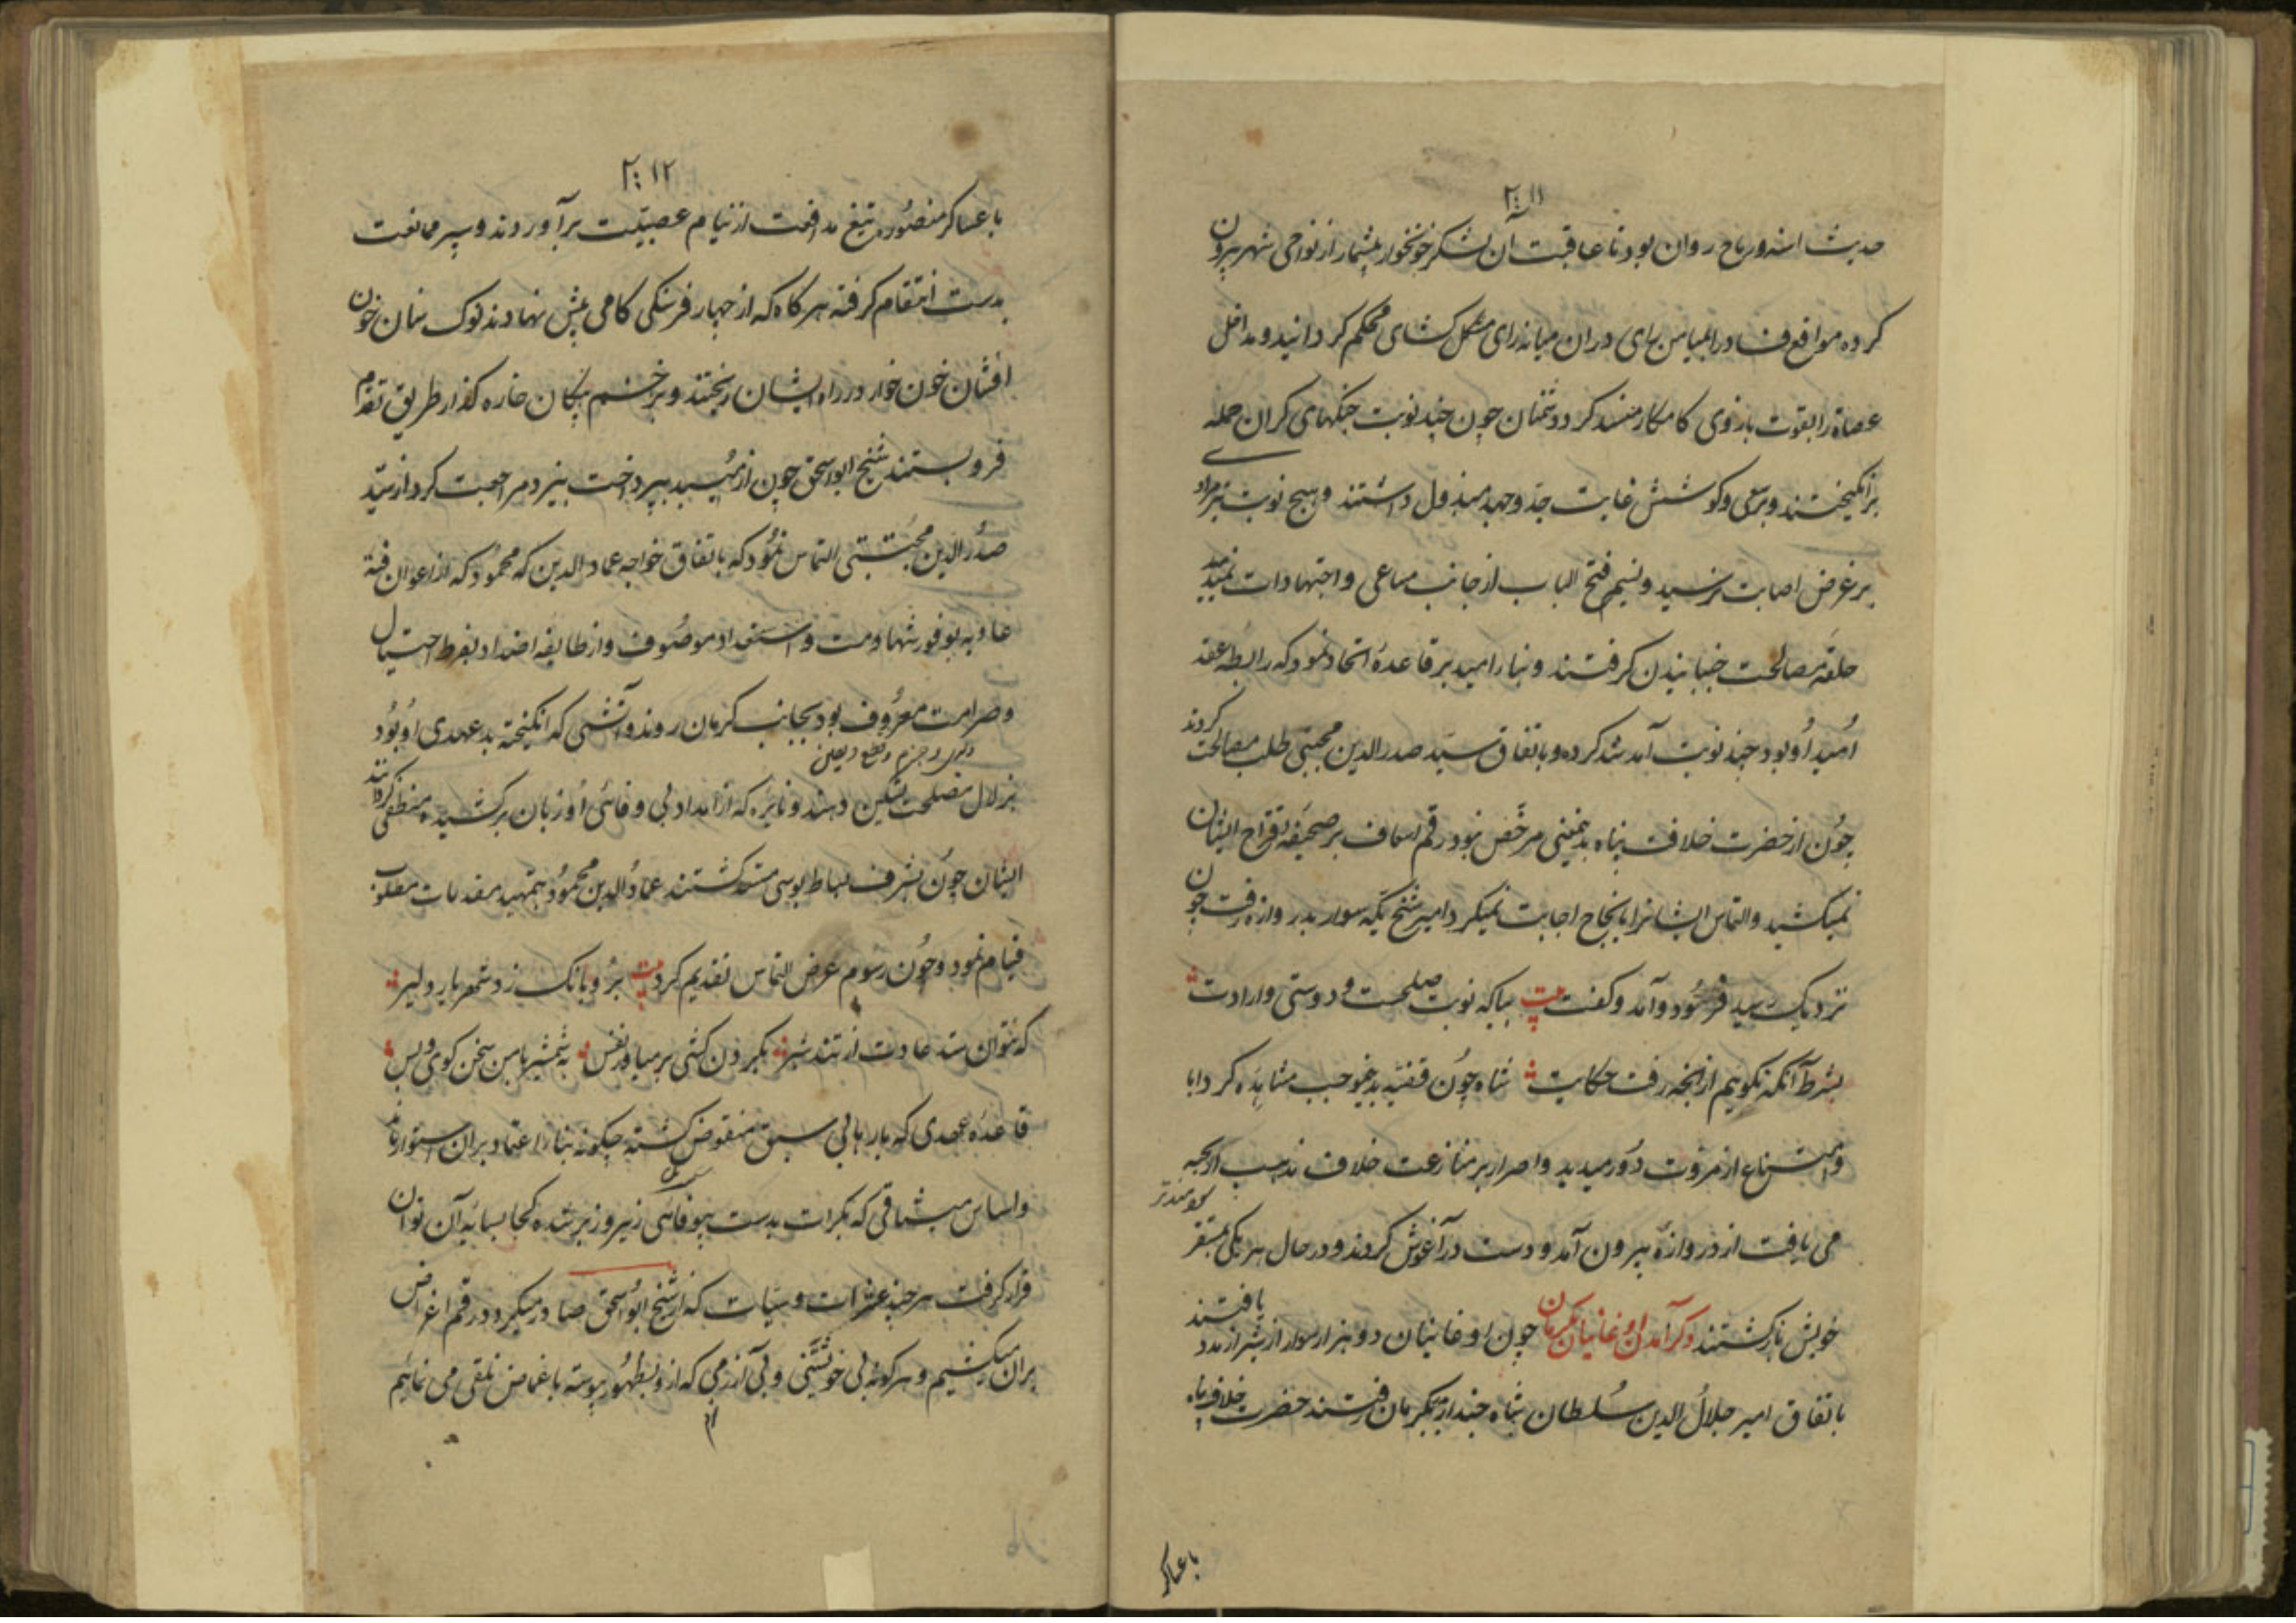 ۲۰۱۱
حدیث اسنه و رماح روان بود تا عاقبت آن لشکر خونخوار بیشمار از نواحی شهر بیرون
کرده مواقع فساد را بمیامن رای دران میانه رای مشکل کشای محکم کردانید و مداخل
عصاة را بقوت بازوی کامکار منسد کرد دشمنان چون چند نوبت جنکهای کران حمله
برانکیختند و سعی و کوشش غایت جد و جهد مبذول داشتند و هیچ نوبت تیر مراد
بر غرض اصابت نرسید و نسیم فتح الباب از جانب مساعی و اجتهادات نمیدمید
حلقهٔ مصالحت جنبانیدن کرفتند و بنا را امید بر قاعدهٔ اتحاد نمود که رابطهٔ عقد
اُمید اُو بود چند نوبت آمد شد کرده و باتفاق سیّد صدر الدین مجتبی طلب مصالحت کردند
چُون از حضرت خلافت پناه بدینمعنی مرخّص نبود رقم اسعاف بر صحیفهٔ اقتراح ایشان
نمیکشید و التماس ایشانرا بانجاح اجابت نمیکرد امیر شیخ یکّه سوار بدر وازه رفت چون
نزدیک رسید فرُود آمد و کفت بیت بیا که نوبت صلحست و دوستی و ارادت
بشرط آنکه نکوییم از انچه رفت حکایت شاه چُون قضیّه بدینموجب مشاهده کرد ابا
و امتناع از مروّت دُور میدید و اصرار بر منازعت خلاف مذهب ارجمند
می یافت از دروازه بیرون آمد و دست در آغوش کردند و در حال هر یکی بمستقر
خویش بازکشتند ذکر آمدن اوغانیان بکرمان چون اوغانیان دو هزار سوار از شیراز مدد یافتند
باتفاق امیر جلالُ الدین سُلطان شاه جندار بکرمان رفتند حضرت خلافت پناه
با عساکر
۲۰۱۲
با عساکر منصُوره تیغ مدافعت از نیام عصبیّت برآوردند و سپر ممانعت
بدست انتقام کرفته هر کاه که از چهار فرسنکی کامی پیش نهادند نوک سنان خون
افشان خون خوار در راه ایشان ریختند و بزخم پیکان خاره کذار طریق تقدّم
فرو بستند شیخ ابو اسحق چون از میُبد بپرداخت بیزد مراجعت کرد از سیّد
صدُر الدین مجُتبی التماس نمُود که باتفاق خواجه عماد الدین که محمُود که از اعوان فتهٔ
عادیه بوفور شهامت و استعداد موصُوف و از طایفه اضداد بفرط احتیال
و صرامت معرُوف بود بجانب کرمان روند و آتشی که انکیخته بد عهدی اُو بُود
بزلال مصلحت تسکین دهند و نایره که از امداد بی وفائی اُو زبان برکشیده منطفی کردانند
ایشان چوُن بشرف بساط بوسی مستسعد کشتند عمادُ الدین محمُود بتمهید مقدمات مطلوب
قیام نمود و چُون رسُوم عرض التماس تقدیم کرد بیت برُو بانک زد شهریار دلیر
که نتوان ستد عادت از تند شیر بکردن کشی بر میاور نفس به شمشیر با من سخن کوی و بس
قاعدهٔ عهدی که بارها بی سبق منقوض کشته چکونه بنا را اعتماد بران استوار ماند
و اساس میثاقی که بکرات بدست بیوفائی زیر و زبر شده کجا بسایهٔ آن توان
قرار کرفت هر چند عثرات و سیّات که از شیخ ابُو اسحق صادر میکردد رقم اغماض
بران میکشیم و هر کونه بی خویشتنی و بی آزرمی که از و بظهُور پیوسته باغماض تلقی می نمائیم